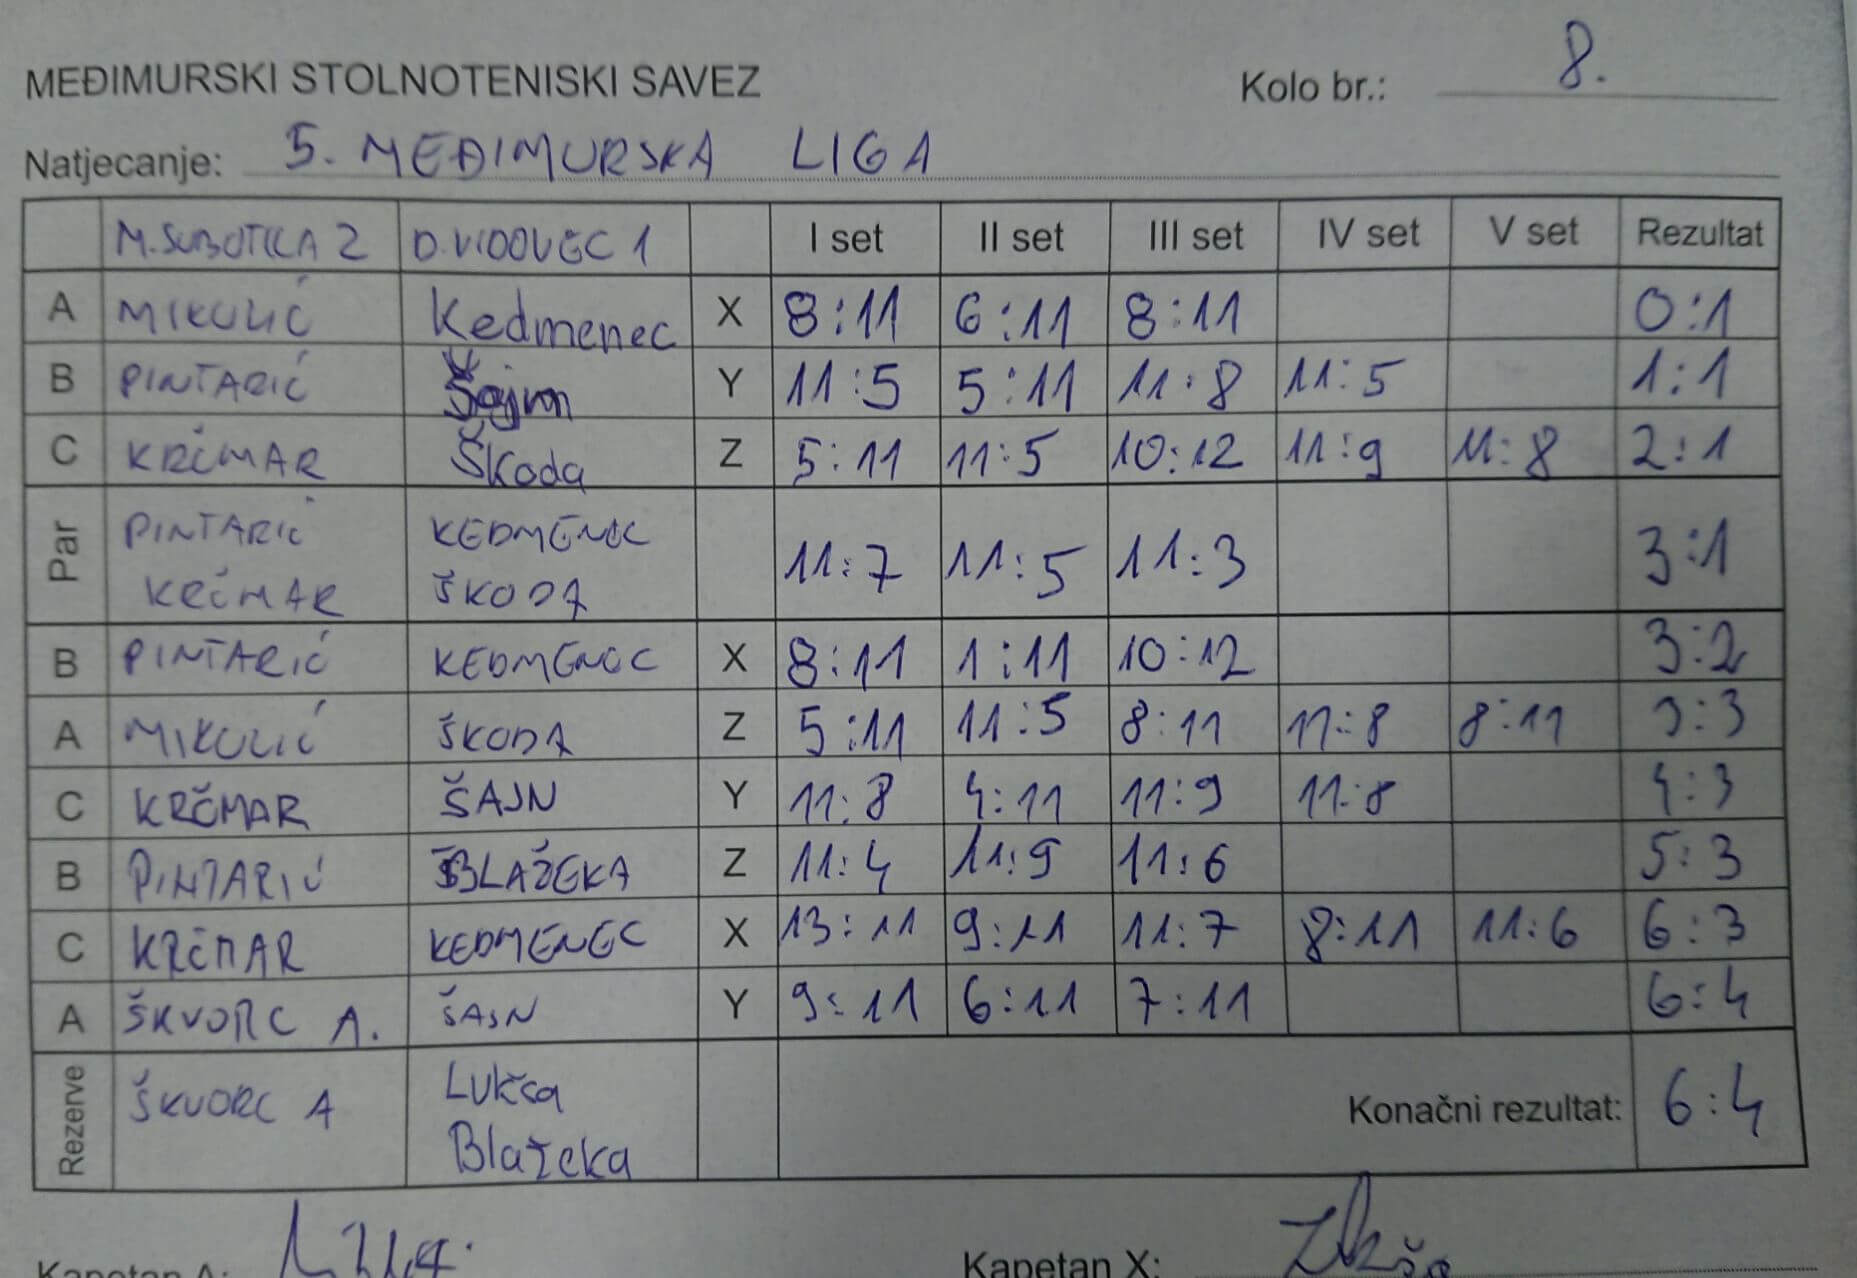 MEĐIMURSKI STOLNOTENISKI SAVEZ Kolo br.: 8.
Natjecanje: 5. MEĐIMURSKA LIGA
M. SUBOTICA 2 D. VIDOVEC 1 I set II set III set IV set V set Rezultat
A MIKULIĆ Kedmenec X 8:11 6:11 8:11 0:1
B PINTARIĆ Šajn Y 11:5 5:11 11:8 11:5 1:1
C KRČMAR Škoda Z 5:11 11:5 10:12 11:9 11:8 2:1
Par PINTARIĆ KEDMENEC
KRČMAR ŠKODA 11:7 11:5 11:3 3:1
B PINTARIĆ KEDMENEC X 8:11 1:11 10:12 3:2
A MIKULIĆ ŠKODA Z 5:11 11:5 8:11 11:8 8:11 3:3
C KRČMAR ŠAJN Y 11:8 4:11 11:9 11:8 4:3
B PINTARIĆ BLAŽEKA Z 11:4 11:9 11:6 5:3
C KRČMAR KEDMENEC X 13:11 9:11 11:7 8:11 11:6 6:3
A ŠKVORC A. ŠAJN Y 9:11 6:11 7:11 6:4
Rezerve ŠKVORC A Lukša
Blažeka Konačni rezultat: 6:4
Kapetan A: Kapetan X: